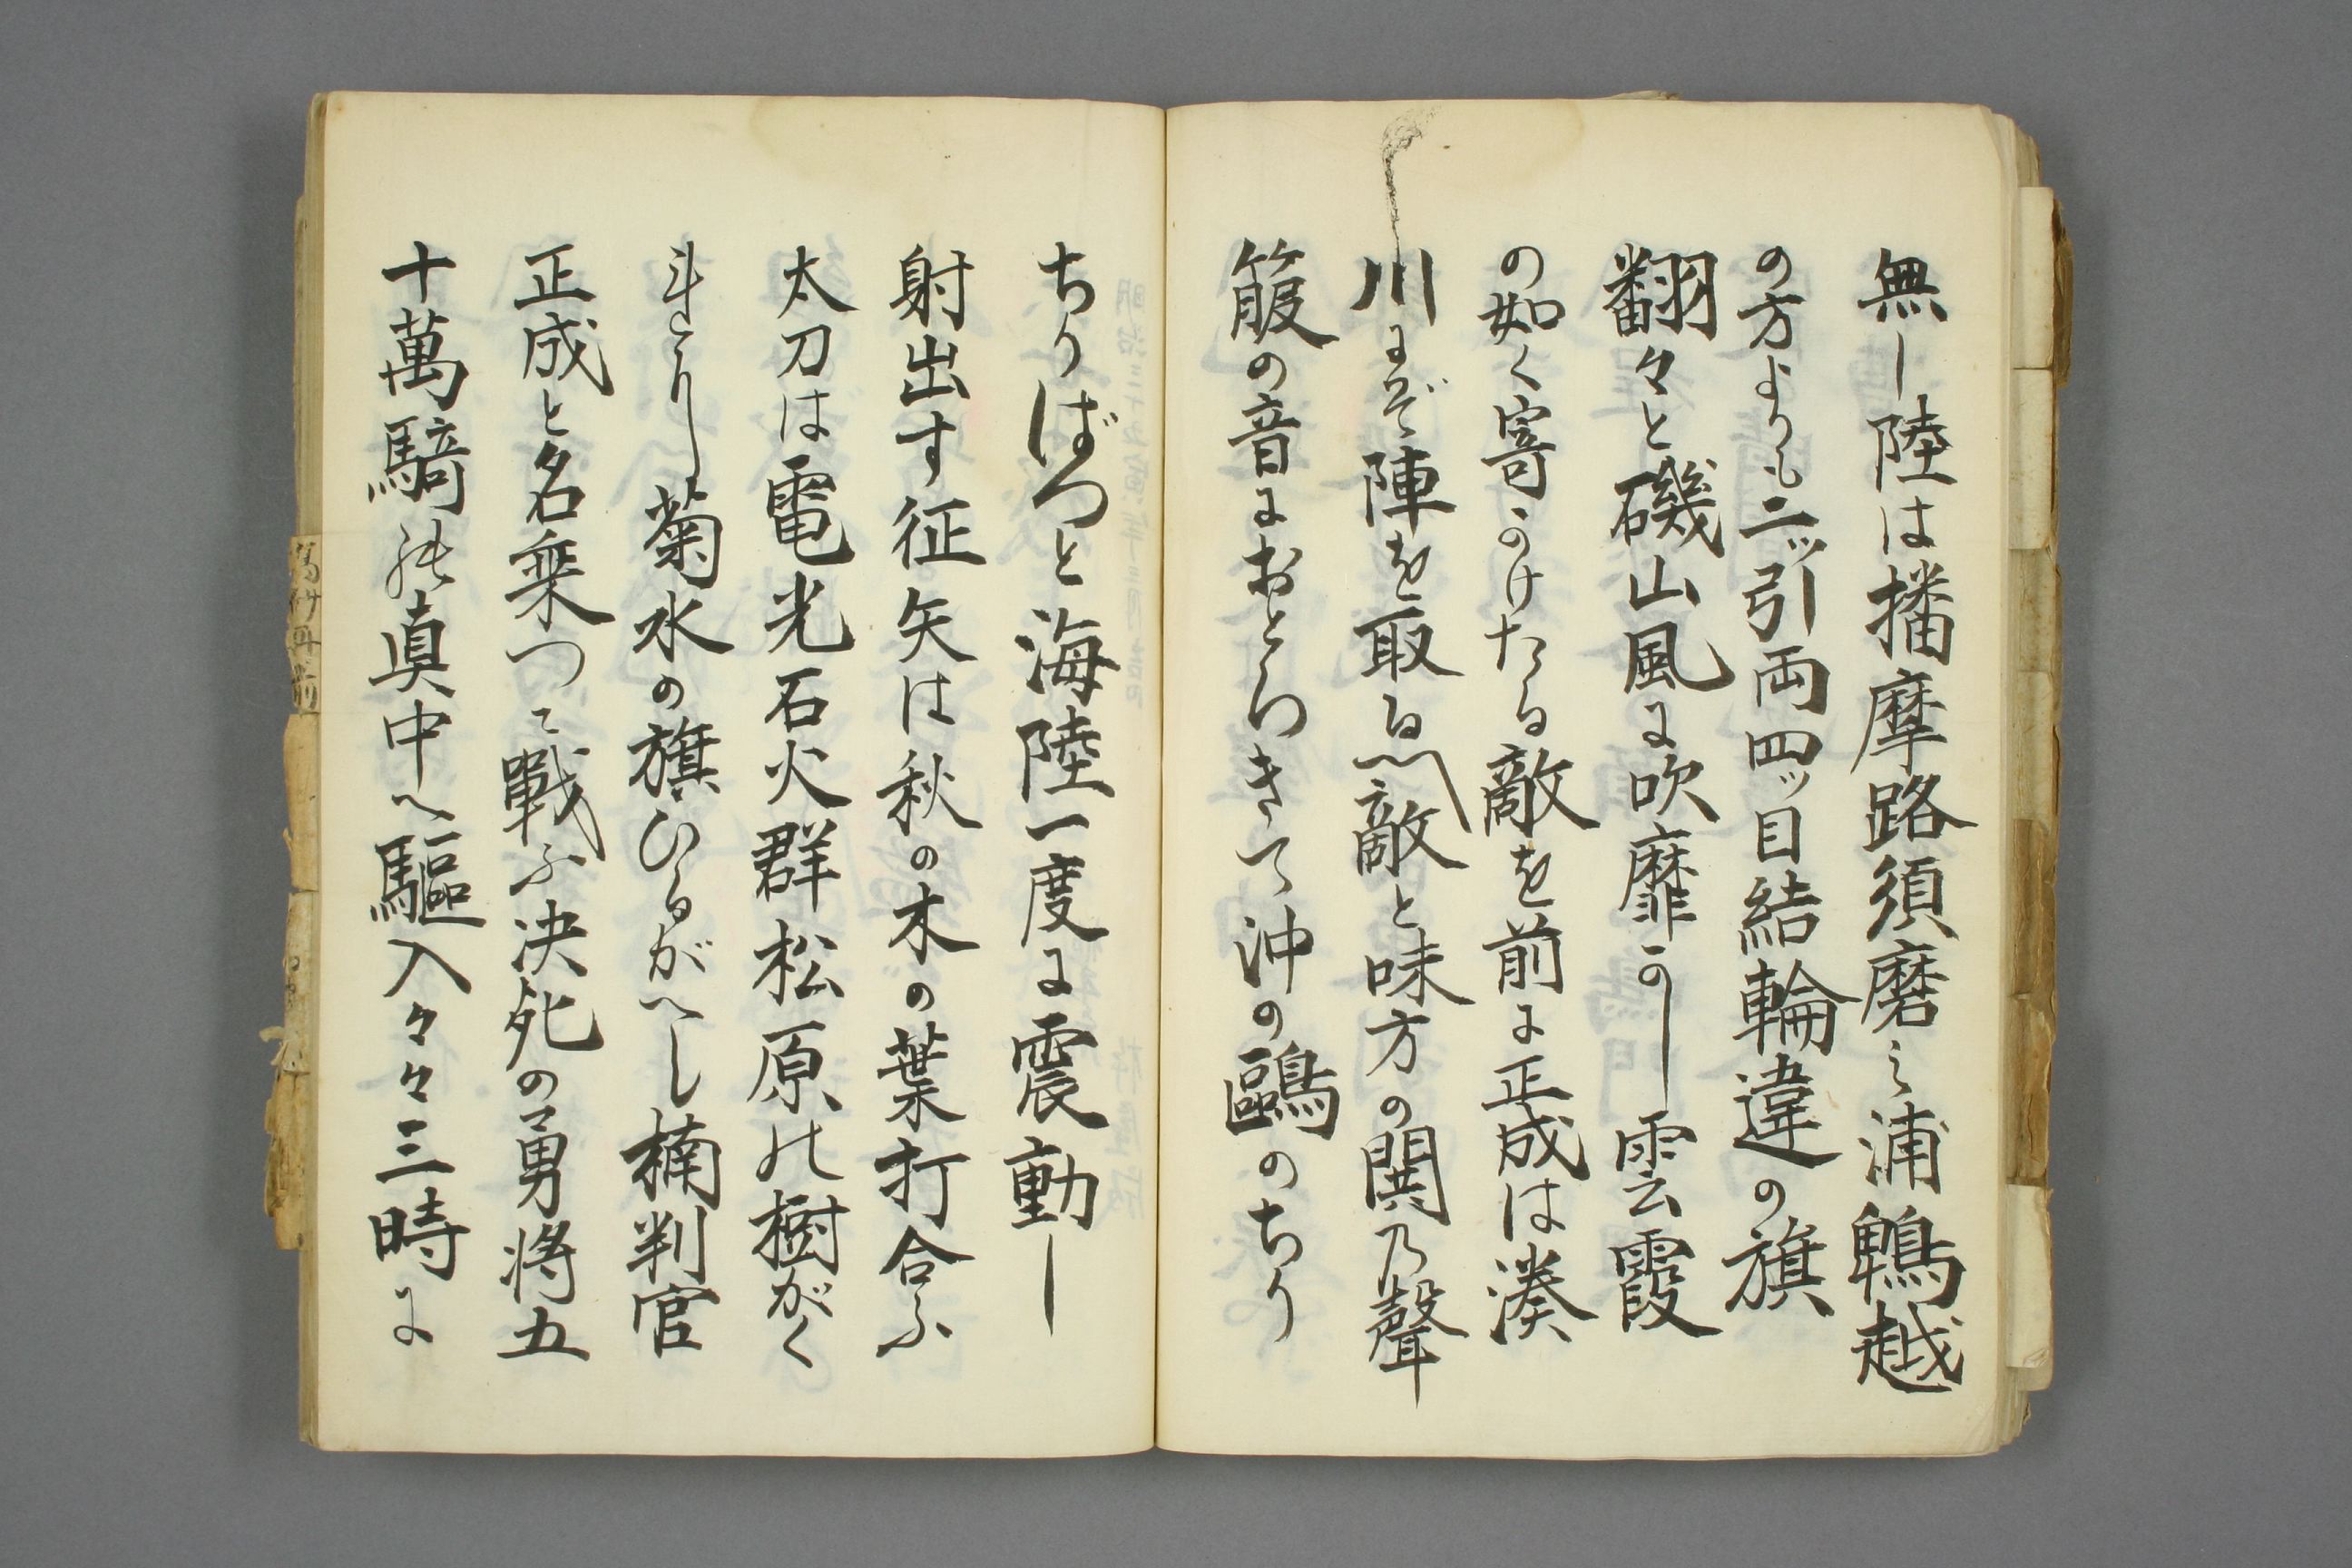 無し陸は播摩路須磨之浦鵯越
の方よりも二ッ引両四ッ目結輪違の旗
翻々と磯山風に吹靡かし雲霞
の如く寄かけたる敵を前に正成は湊
川にぞ陣を取る〽敵と味方の関乃聲
箙の音におとろきて沖の鷗のちり
ちりぱつと海陸一度に震動し
射出す征矢は秋の木の葉打合ふ
太刀は電光石火群松原の樹がく
斗とりし菊水の旗ひるがへし楠判官
正成と名乗つて戰ふ决死の勇将五
十萬騎の真中へ驅入々々三時に
高砂丹前